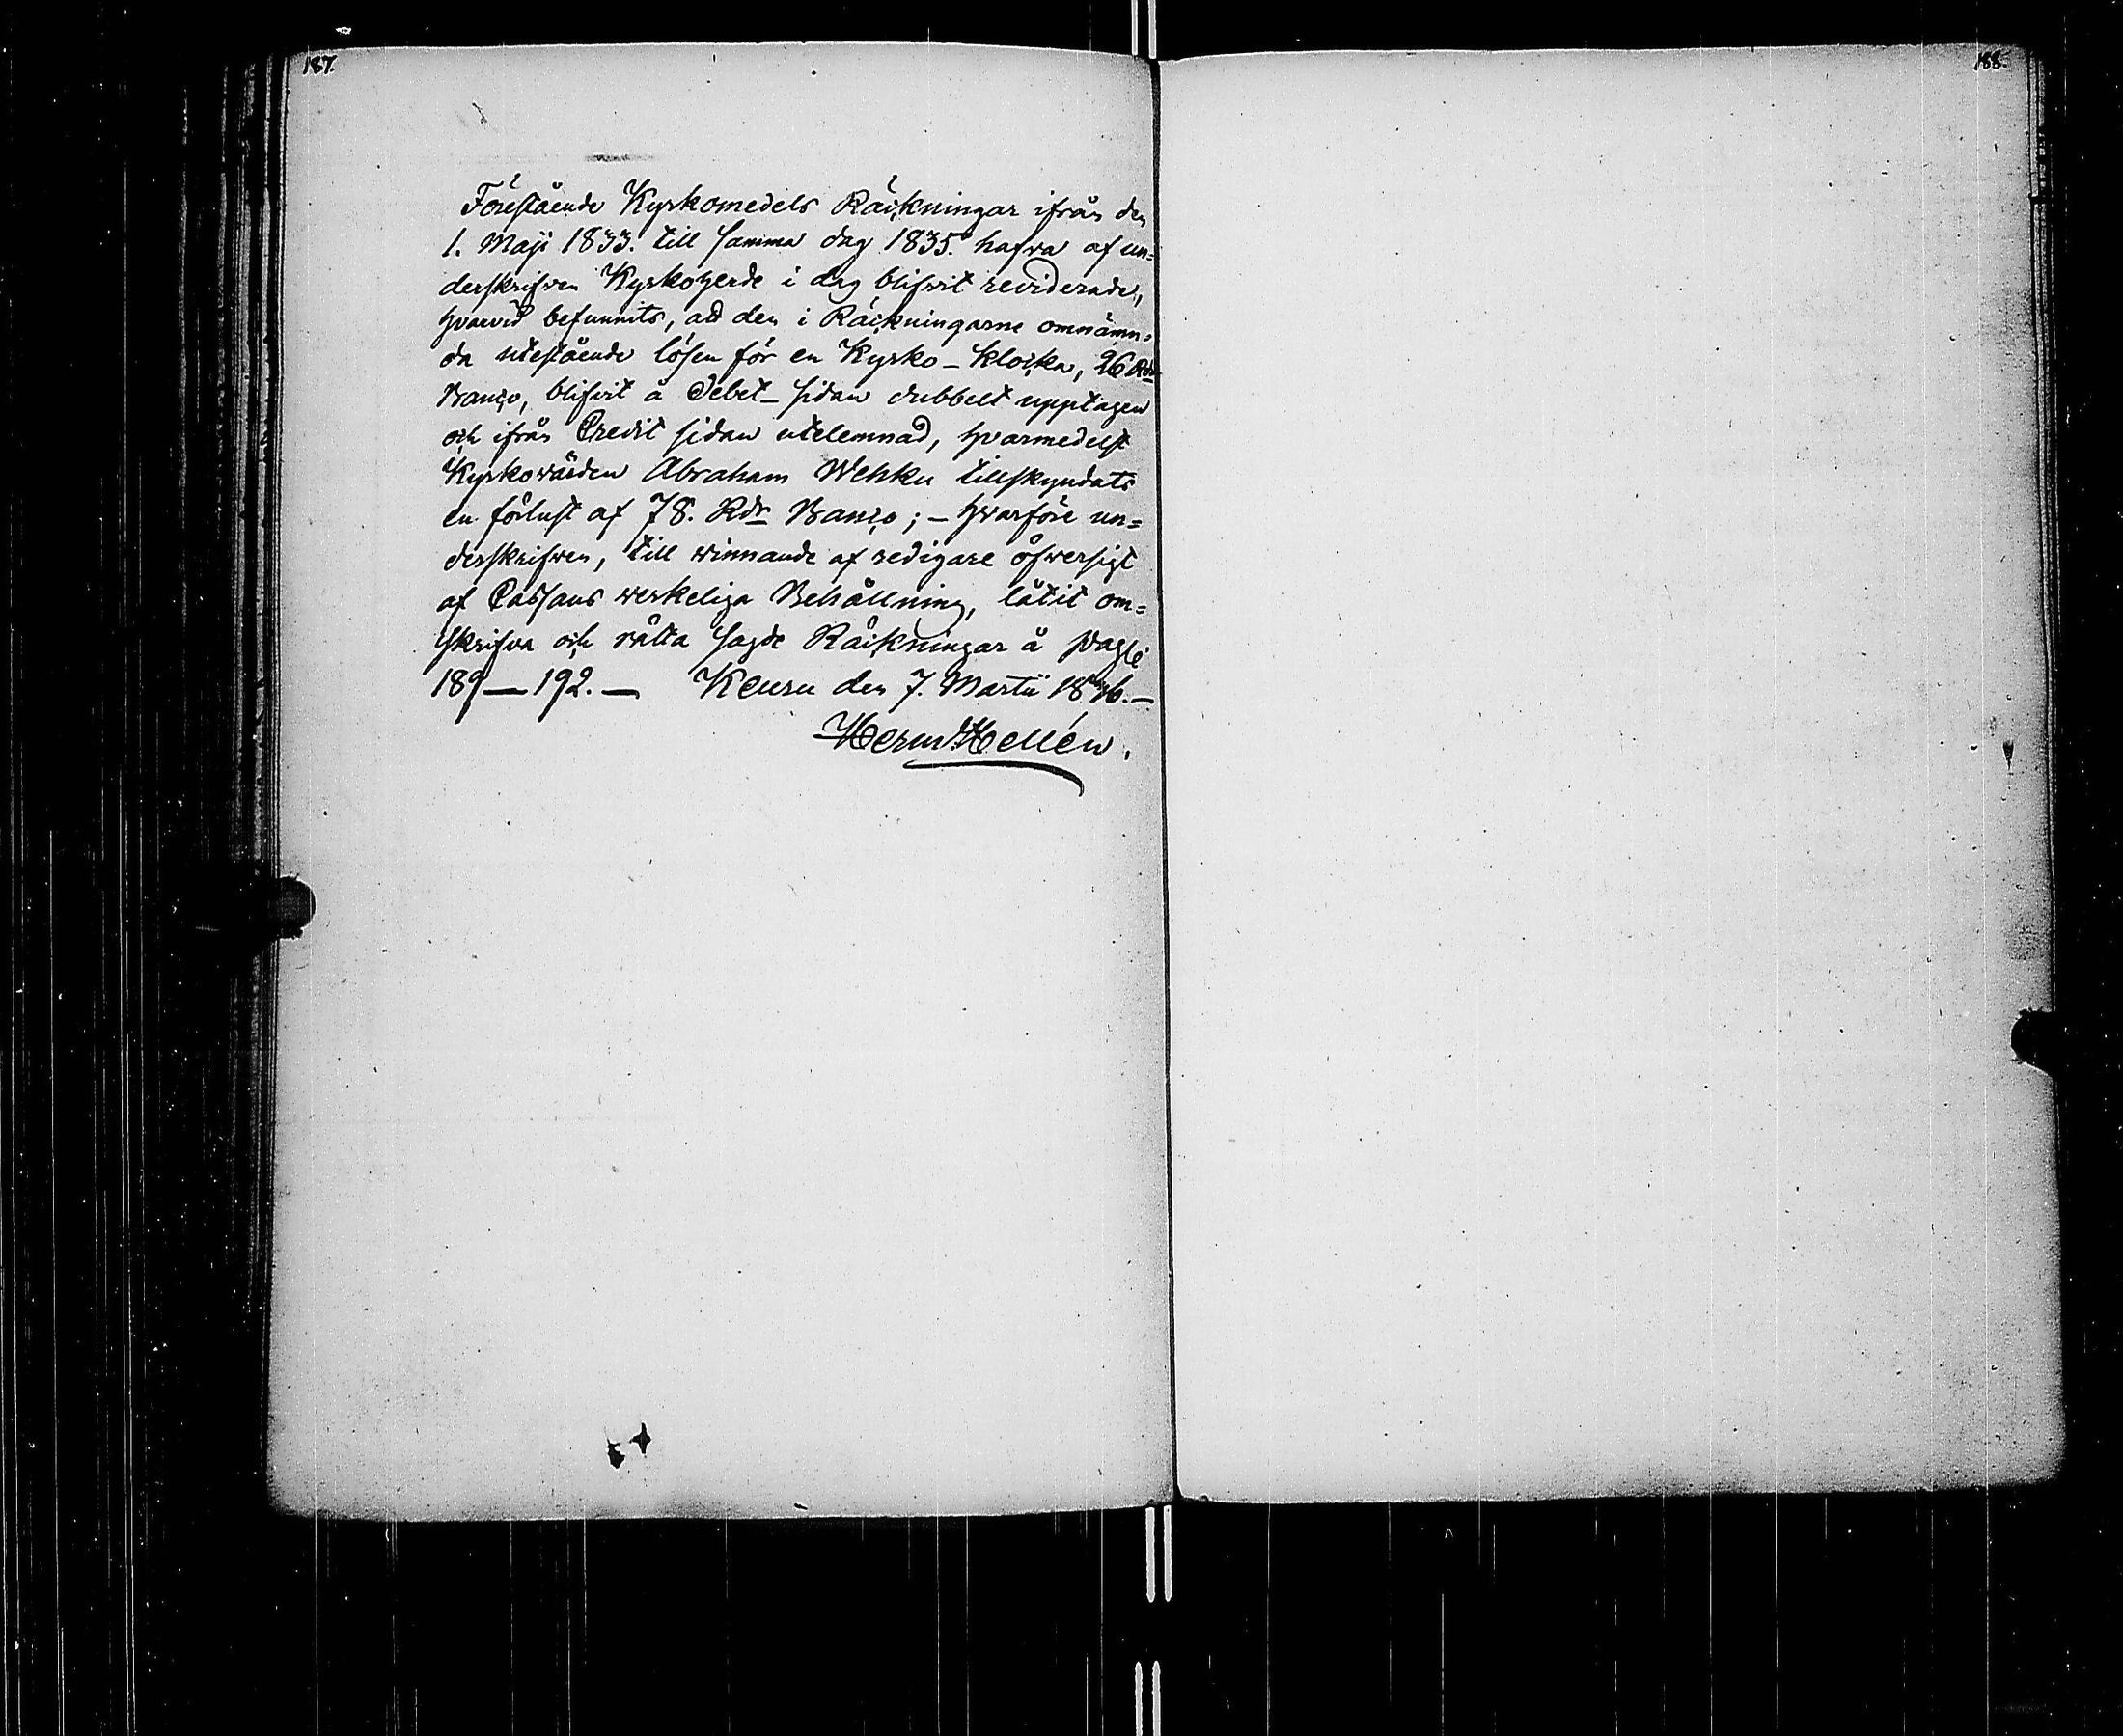 187.
188.
Förestående Kyrkomedels Räckningar ifrån den
1. Maji 1833. till samma dag 1835. hafva af un=
derskrifven Kyrkoherde i dag blifvit reviderade,
hvarvid befunnits, att den i Räckningarne omnämn=
da utestående lösen för en Kyrko-Klocka, 26 Rdr
Banco, blifvit å Debet-sidan dubbelt upptagen
och ifrån Credit sidan utelemnad, hvarmedelst
Kyrkovärden Abraham Wehku tillskyndats
en förlust af 78. Rdr Banco; - hvarföre un=
derskrifven, till winnande af redigare öfversigt
af Cassans werkeliga Behållning, låtit om=
skrifva och rätta sagde Räckningar å pag:
189-192. - Keuru den 7. Martii
Hellén.